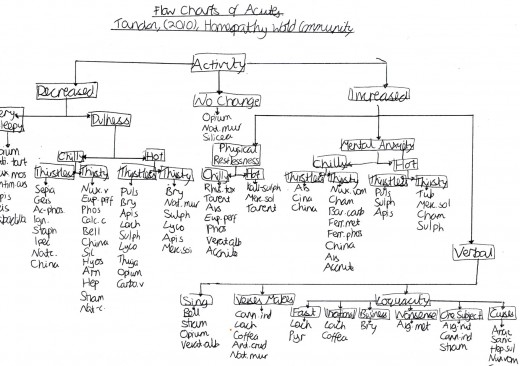 Flow Charts of Acutes
Tandon, (2010), Homeopathy World Community
Activity
Decreased
No Change
Increased
Opium
Nat. mur
Silicea
Dulness
Physical
Restlessness
Mental Anxiety
Chilly
Hot
Chilly
Hot
Chilly
Hot
Thirstless
Thirsty
Thirstless
Thirsty
Thirstless
Thirsty
Thirstless
Thirsty
Sepia
Gels
Ac-phos
Ign.
Staph
Ipec
Nat-c.
China
Nux.v
Eup. perf
Phos
Calc.c
Bell
China
Sil
Hyos
Arn
Hep
Stram
Nat-c.
Puls
Bry
Apis
Lach
Sulph
Lyco
Thuja
Opium
Carbo.v
Bry
Nat.mur
Sulph
Lyco
Apis
Merc.sol
Rhus.tox
Tarent
Ars
Eup.perf
Phos
Verat.alb
Aconite
Kali-sulph
Merc.sol
Tarent
Ars
Cina
China
Nux.vom
Cham
Bar-carb
Ferr.met
Ferr.phos
China
Ars
Aconite
Puls
Sulph
Apis
Tub
Merc.sol
Cham
Sulph
Verbal
Sing
Bell
Stram
Opium
Verat.alb
Verses Makes
Cann.ind
Lach
Coffea
Ant.crud
Nat.mur
Loquacity
Fast
Lach
Pyr
Lach
Coffea
Business
Bry
Nonsense
Arg.met
One Subject
Arg.nit
Cann.ind
Stram
Curses
Sanic
Hep.sul
Nux.vom